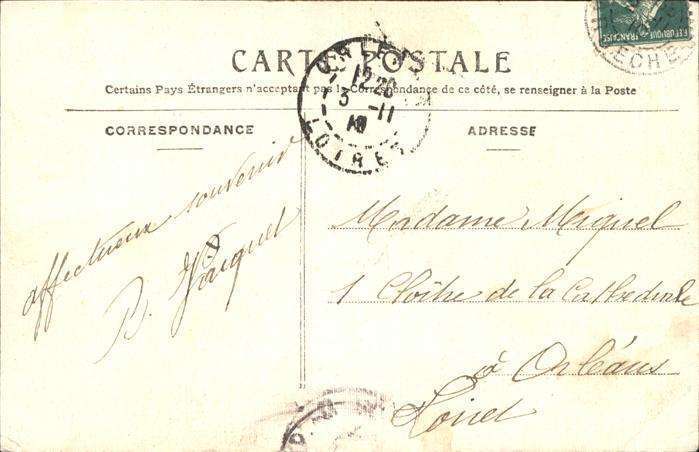 REPUBLIQUE FRANÇAISE
CARTE POSTALE
Certains Pays Étrangers n'acceptant pas la Correspondance de ce côté, se renseigner à la Poste
ORLEANS
12 20
5 - 11
10
LOIRET
CORRESPONDANCE
ADRESSE
affectueux souvenir
B.
Madame Miquel
1 Cloître de la Cathédrale
à Orléans
Loiret